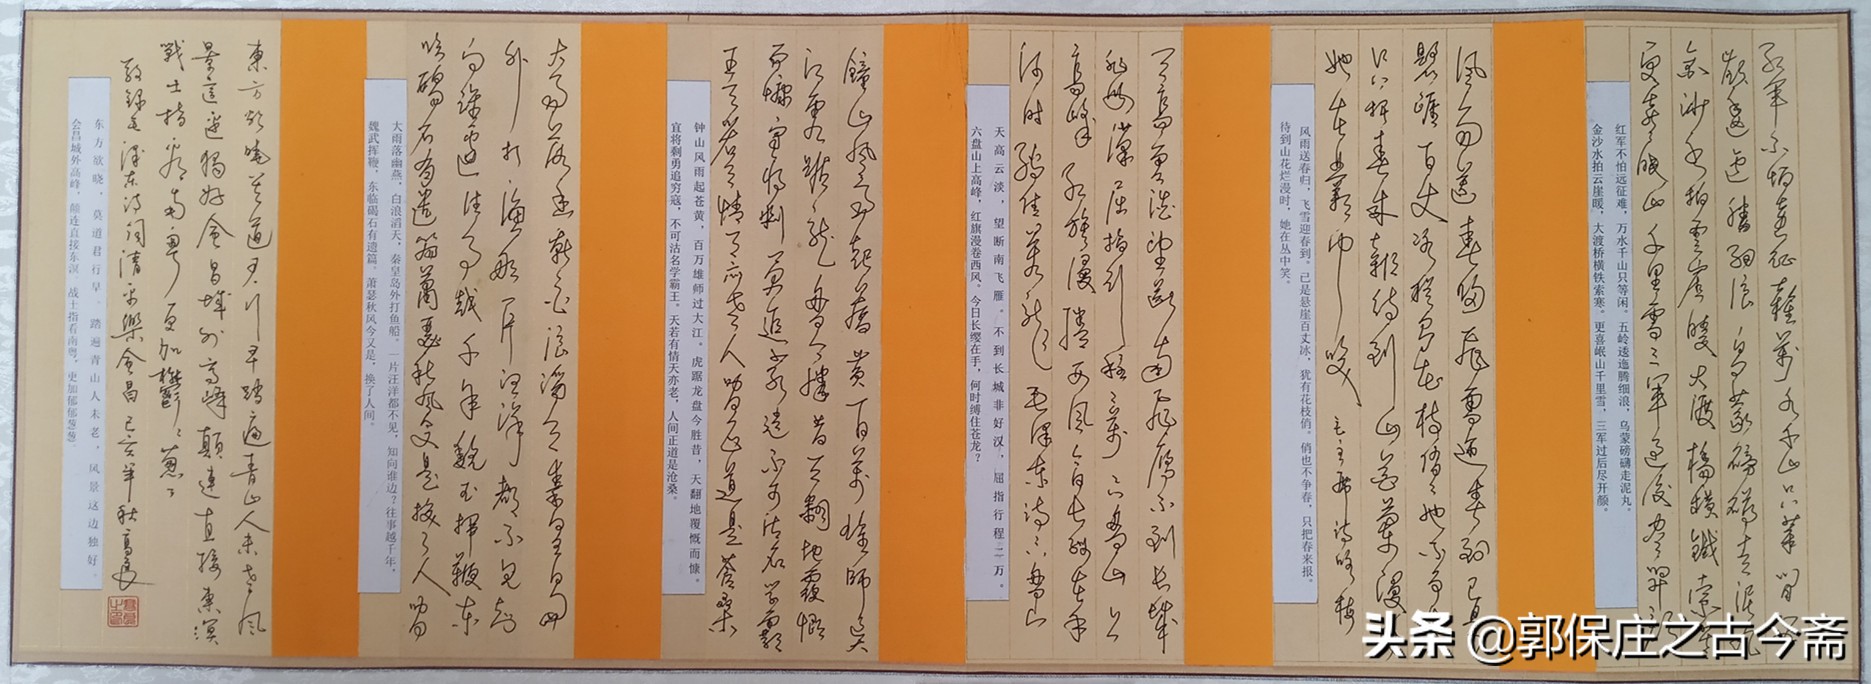 红軍不怕遠征難萬水千山只等閒
嶺逶迤腾细浪乌蒙磅礴走泥丸
金沙水拍雲崖暖大渡橋横鐵索寒
更喜岷山千里雪三军过後尽開
红军不怕远征难，万水千山只等闲。五岭逶迤腾细浪，乌蒙磅礴走泥丸。
金沙水拍云崖暖，大渡桥横铁索寒。更喜岷山千里雪，三军过后尽开颜。
風雨送春归飛雪迎春到已是
懸崖百丈冰犹有花枝俏俏也不争春
只把春来報待到山花爛漫
她在丛中笑 毛主席诗咏梅
风雨送春归，飞雪迎春到。已是悬崖百丈冰，犹有花枝俏。俏也不争春，只把春来报。
待到山花烂漫时，她在丛中笑。
天高雲淡望断南飛雁不到长城
非好漢屈指行程二萬六盘山上
高峰红旗漫捲西風今日长缨在手
何时缚住苍龙 毛泽东诗六盘山
天高云淡，望断南飞雁。不到长城非好汉，屈指行程二万。
六盘山上高峰，红旗漫卷西风。今日长缨在手，何时缚住苍龙？
鐘山風雨起蒼黄百萬雄師过大
江虎踞龙盘今勝昔天翻地覆慨
而慷宜将剩勇追穷寇不可沽名学霸
王天若有情天亦老人间正道是蒼桑
钟山风雨起苍黄，百万雄师过大江。虎踞龙盘今胜昔，天翻地覆慨而慷。
宜将剩勇追穷寇，不可沽名学霸王。天若有情天亦老，人间正道是沧桑。
大雨落幽燕白浪滔天秦皇島
外打漁船一片汪洋都不见知
向谁边往事越千年魏武揮鞭东
临碣石有遗篇萧瑟秋風今又是换了人间
大雨落幽燕，白浪滔天，秦皇岛外打鱼船。一片汪洋都不见，知向谁边？往事越千年，
魏武挥鞭，东临碣石有遗篇。萧瑟秋风今又是，换了人间。
東方欲曉莫道君行早踏遍青山人未老風
景這邊獨好會昌城外高峰顛連直接東溟
戰士指看南粤更加鬱鬱葱葱
敬録毛澤东诗词清平樂會昌 己亥年秋
东方欲晓，莫道君行早。踏遍青山人未老，风景这边独好。
会昌城外高峰，颠连直接东溟。战士指看南粤，更加郁郁葱葱。
头条 @郭保庄之古今斋